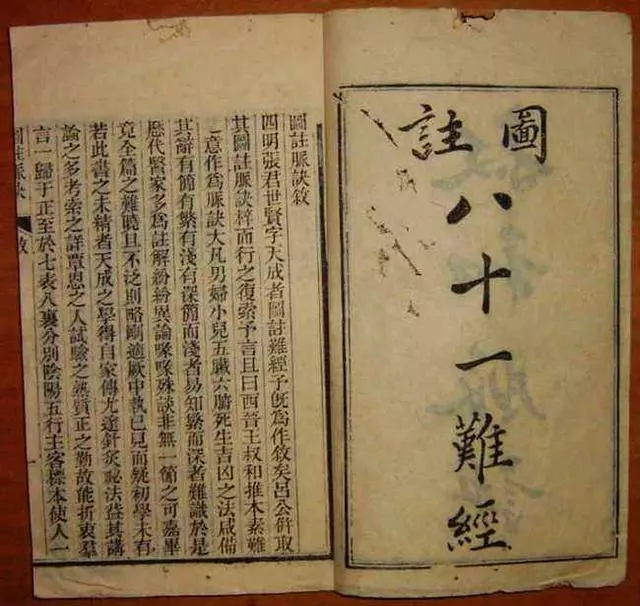 圖註
八十一難經
圖註脈訣敘
四明張君世賢字天成者圖註難經予旣爲作敘矣呂公併取
其圖註脈訣梓而行之復索予言且曰西晉王叔和推本素難
之意作爲脈訣大凡男婦小兒五臟六腑死生吉凶之法咸備
其辭有簡有繁有淺有深簡而淺者易知繁而深者難識於是
歷代醫家多爲註解紛紛異論喙喙殊談非無一節之可嘉畢
竟全篇之難曉且不泛則略剛適厥中執已見而疑初學未有
若此書之未精者天成之學得自家傳尤逵針灸祕法益其講
論之多考索之詳覃思之久試驗之熟質正之勤故能折衷羣
言一歸于正至於七表八裏分別陰陽五行主客標本使人一
圖註脈訣 敘 一